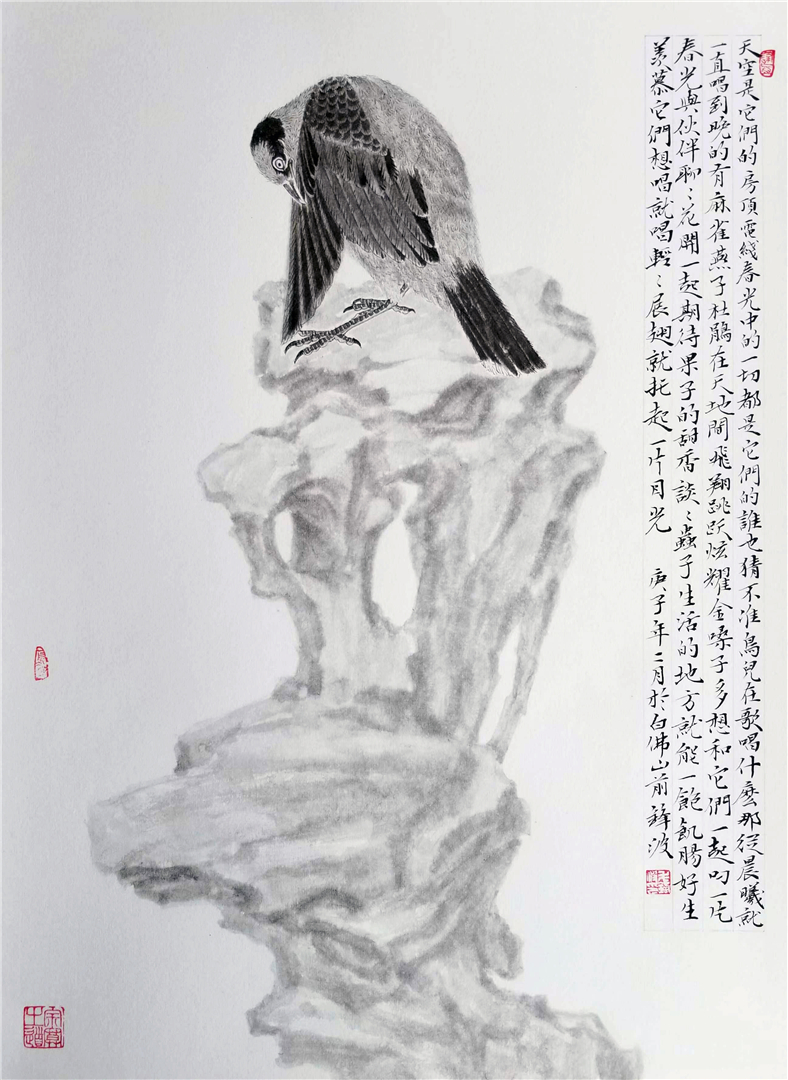 天空是它們的房頂電綫春光中的一切都是它們的誰也猜不准鳥兒在歌唱什麼那從晨曦就
一直唱到晚的有麻雀燕子杜鵑在天地間飛翔跳跃炫耀金嗓子多想和它們一起勻一片
春光與伙伴聊〻花開一起期待果子的甜香談〻蟲子生活的地方就能一飽飢腸好生
羡慕它們想唱就唱輕〻展翅就托起一片月光 庚子年二月於白佛山前鋒波